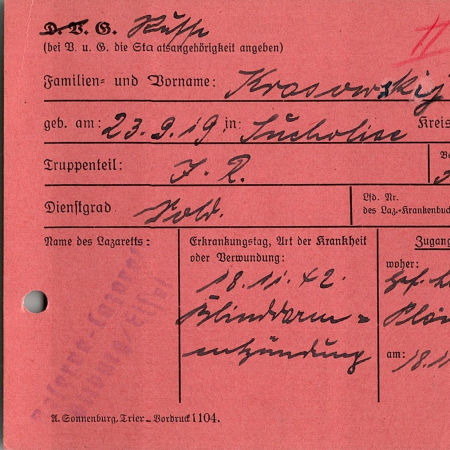 D. V. G. Russe
II
(bei V. u. G. die Staatsangehörigkeit angeben)
Familien- und Vorname: Krasowskij
geb. am: 23.9.19 in: Sucholise Kreis
Truppenteil: J. R.
Dienstgrad Sold.
Lfd. Nr.
des Laz.-Krankenbuc
Name des Lazaretts:
Erkrankungstag, Art der Krankheit
oder Verwundung:
18.11.42.
Blinddarm=
entzündung
Zugang
woher:
am: 18.11
A. Sonnenburg, Trier – Vordruck 1104.